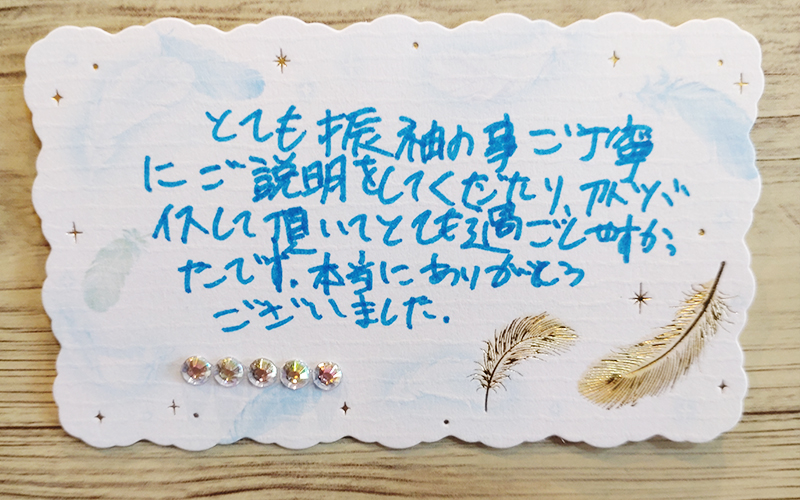 とても振袖の事ご丁寧
にご説明をしてくださたり、アドバ
イスして頂いてとても過ごしやすかっ
たです。本当にありがとう
ございました。